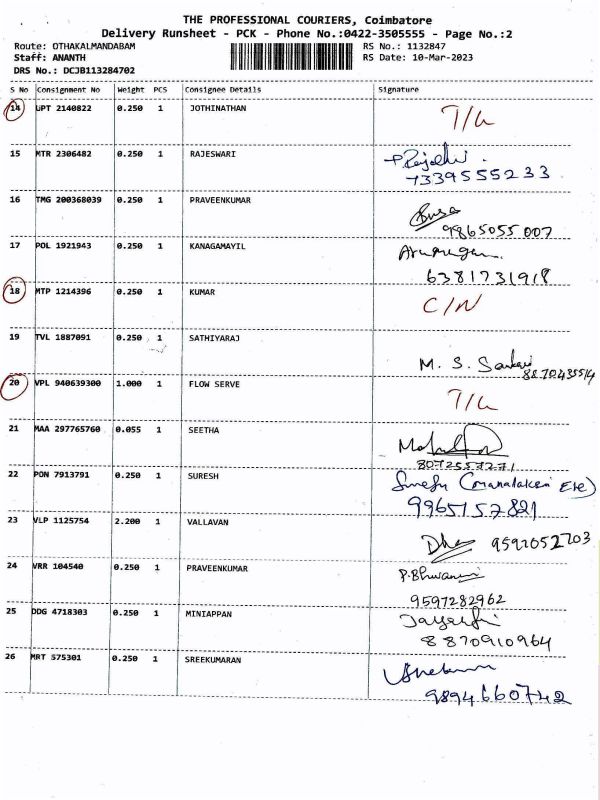 THE PROFESSIONAL COURIERS, Coimbatore
Delivery Runsheet - PCK - Phone No.:0422-3505555 - Page No.:2
Route: OTHAKALMANDABAM RS No.: 1132847
Staff: ANANTH RS Date: 10-Mar-2023
DRS No.: DCJB113284702
S No Consignment No Weight PCS Consignee Details Signature
14 UPT 2140822 0.250 1 JOTHINATHAN T/L
15 MTR 2306482 0.250 1 RAJESWARI
7339555233
16 TMG 200368039 0.250 1 PRAVEENKUMAR
9865055007
17 POL 1921943 0.250 1 KANAGAMAYIL Arumugam
6381731918
18 MTP 1214396 0.250 1 KUMAR C/N
19 TVL 1887091 0.250 1 SATHIYARAJ
M. S. Sankari
8870435514
20 VPL 940639300 1.000 1 FLOW SERVE T/L
21 MAA 297765760 0.055 1 SEETHA
22 PON 7913791 0.250 1 SURESH Suresh
9965157821
23 VLP 1125754 2.200 1 VALLAVAN
9597052703
24 VRR 104540 0.250 1 PRAVEENKUMAR P.Bhuvana
9597282962
25 DDG 4718303 0.250 1 MINIAPPAN
8870910964
26 MRT 575301 0.250 1 SREEKUMARAN
9894660742